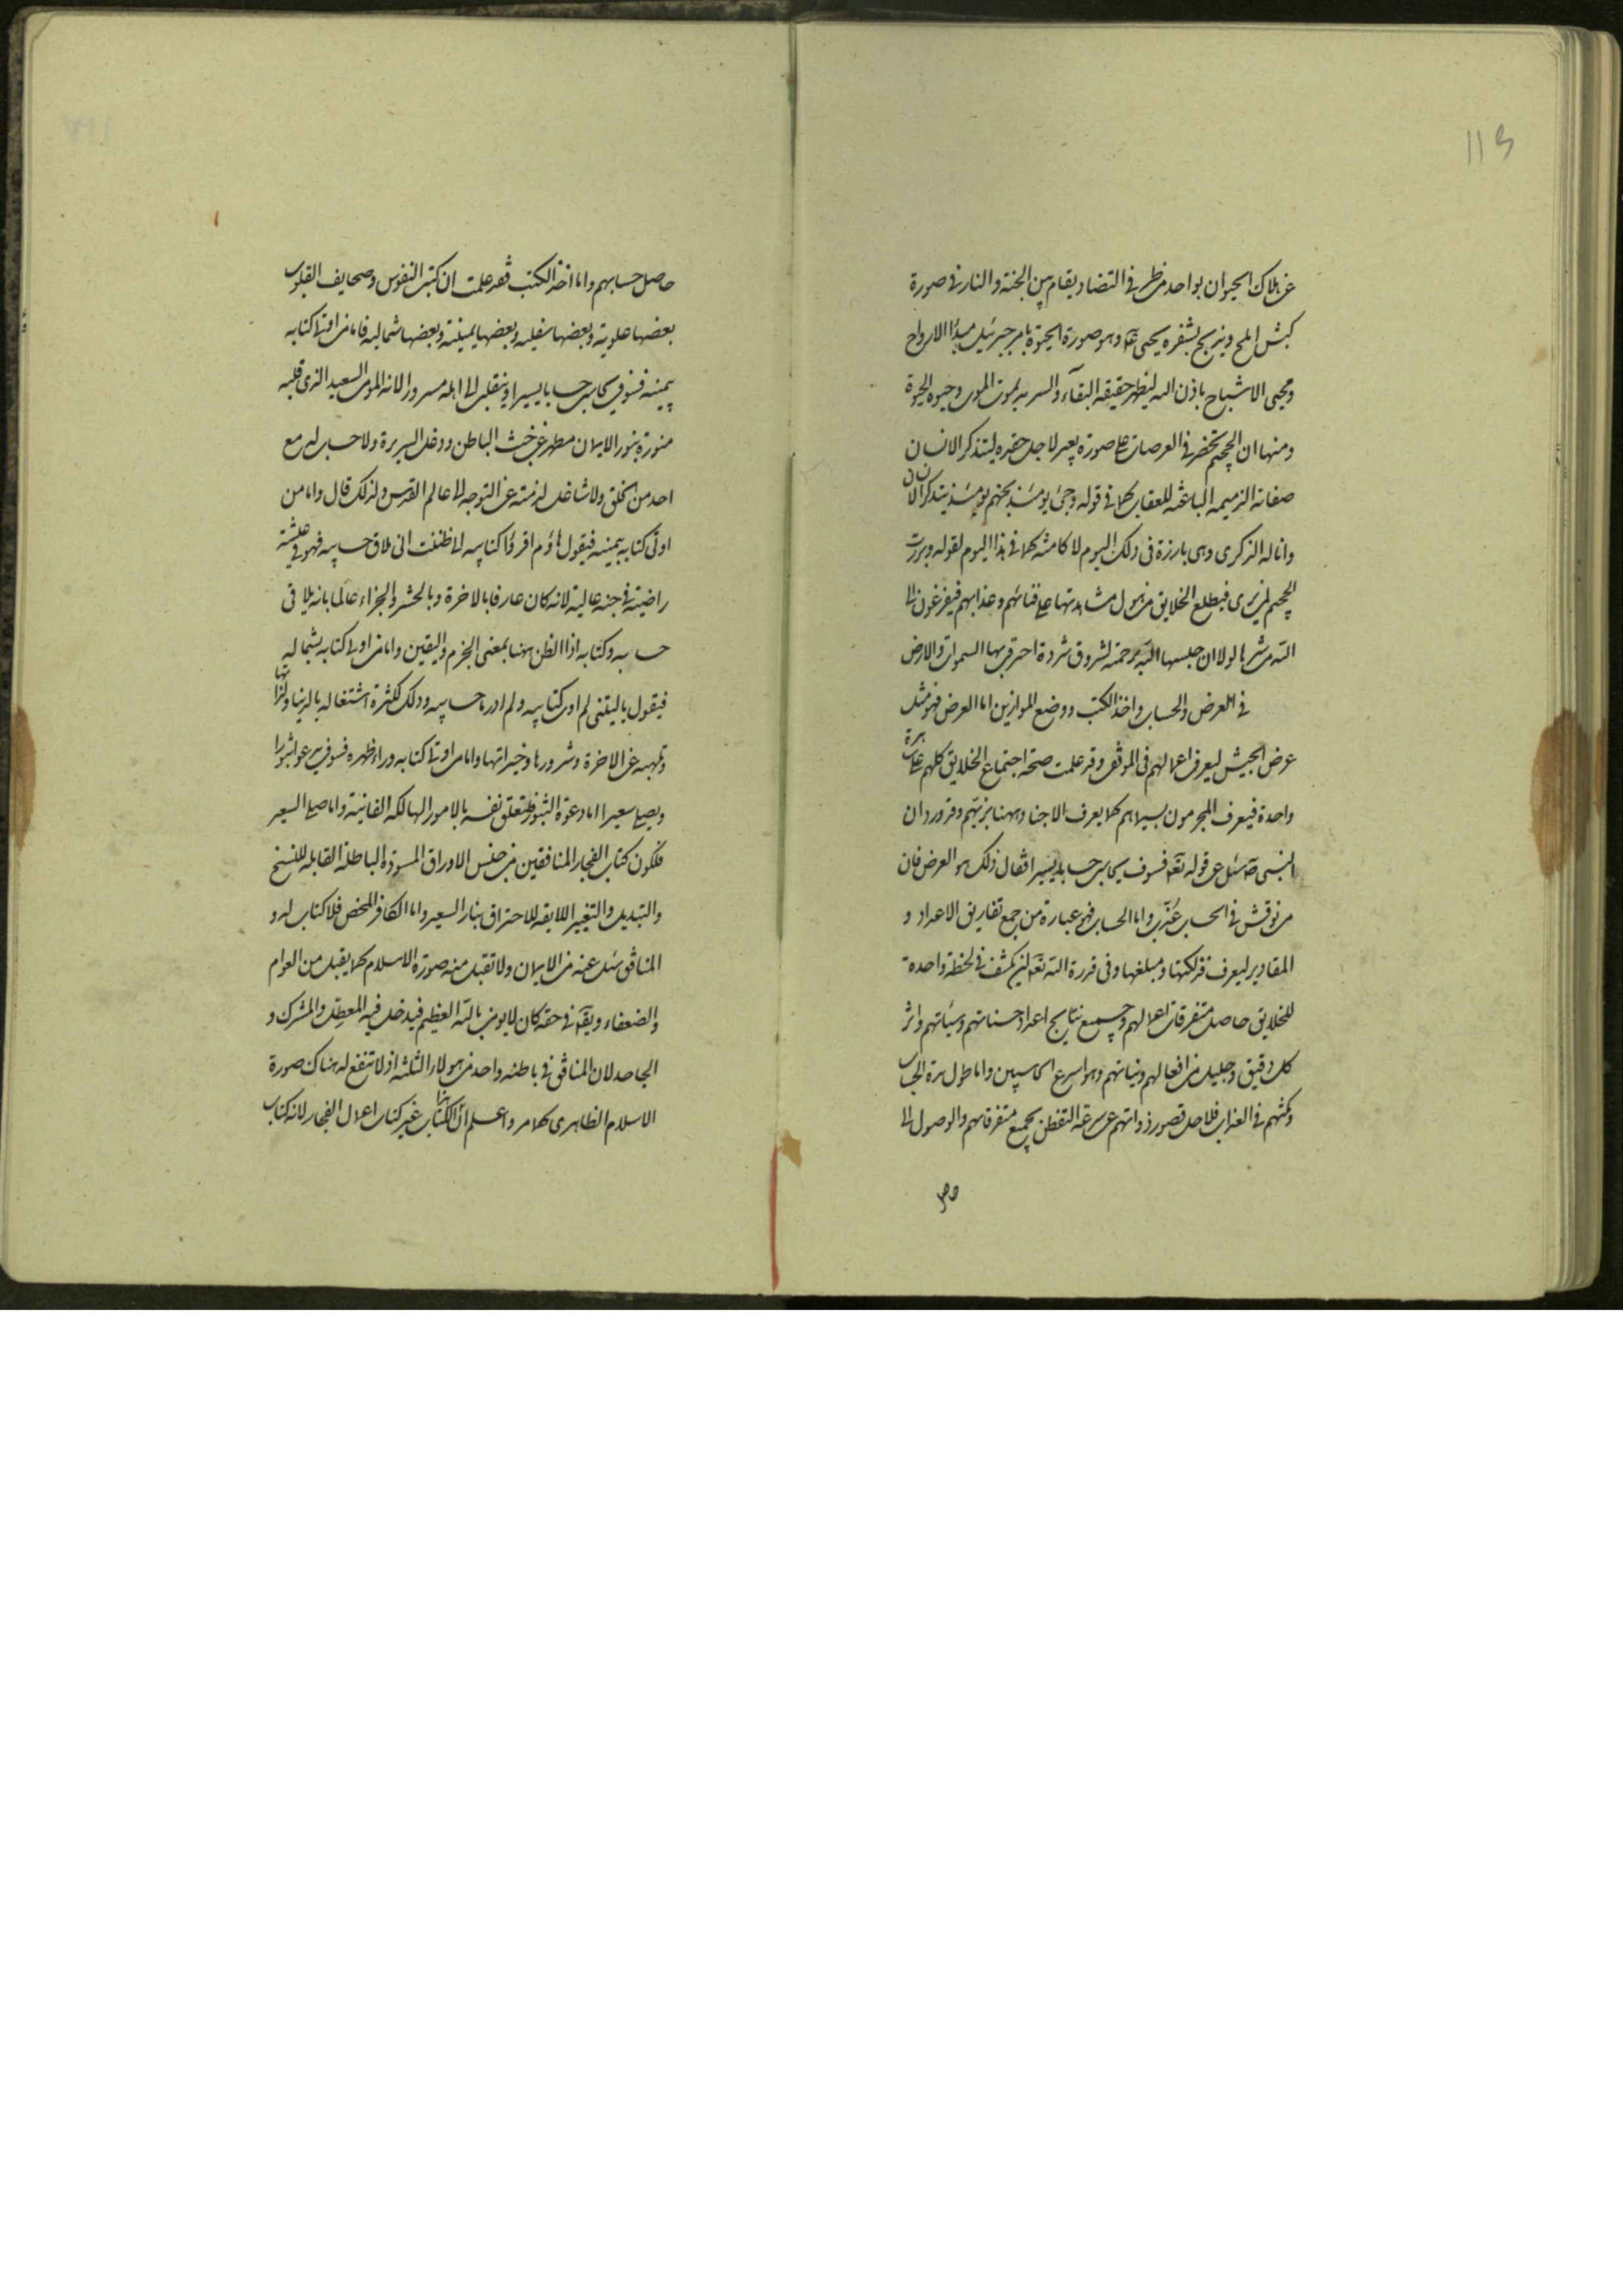 115
عن هلاك الحيوان بواحد من طرفى التضاد يقام بين الجنة والنار فى صورة
كبش املح ويذبح بشفرة يحيى عَ وهو صورة الحيوة بامر جبرئيل مبدأ الارواح
ومحيى الاشباح باذن الله ليظهر حقيقة البقاء والسرمد لموت الموت وحيوة الحيوة
ومنها ان الجحيم تحضر فى العرصات على صورة بعير لاجل حقده ليتذكر الانسان
صفاته الذميمة الباعثة للعقاب كما فى قوله وجئ يومئذ بجهنم يومئذ يتذكر الانسان
وانا له الذكرى وهى بارزة فى ذلك اليوم لا كامنة كما فى هذا اليوم لقوله وبرزت
الجحيم لمن يرى فيطلع الخلايق من هول مشاهدتها على فنائهم وعذابهم فيفزعون الى
الله من شرها لولا ان حبسها الله برحمته لشردت شردة احترق بها السموات والارض
فى العرض والحساب واخذ الكتب ووضع الموازين اما العرض فهو مثل
عرض الجيش ليعرف اعمالهم فى الموقف وقد علمت صحة اجتماع الخلايق كلهم على ساهرة
واحدة فيعرف المجرمون بسيماهم كما يعرف الاجناد ههنا بزيّهم وقد ورد ان
النبى صَ سئل عن قوله تعَ فسوف يحاسب حسابا يسيرا فقال ذلك هو العرض فان
من نوقش فى الحساب عُذّب واما الحساب فهو عبارة من جمع تفاريق الاعداد و
المقادير ليعرف فذلكتها ومبلغها وفى قدرة الله تعَ ان يكشف فى لحظة واحدة
للخلايق حاصل متفرقات اعمالهم وجميع نتايج اعداد حسناتهم وسيئاتهم واثر
كل دقيق وجليل من افعالهم ونياتهم وهو اسرع الحاسبين واما طول مدة الحساب
ومكثهم فى العذاب فلاجل قصور ذواتهم عن سرعة التفطن بجميع متفرقاتهم والوصول الى
حاصل حسابهم واما اخذ الكتب فقد علمت ان كتب النفوس وصحايف القلوب
بعضها علوية وبعضها سفلية وبعضها يمينية وبعضها شمالية فاما من اوتى كتابه
بيمينه فسوف يحاسب حسابا يسيرا وينقلب الى اهله مسرورا لانه المؤمن السعيد الذى قلبه
منورة بنور الايمان مطهر عن خبث الباطن ودغل السريرة ولا حساب له مع
احد من الخلق ولا شاغل لذمته عن التوجه الى عالم القدس ولذلك قال واما من
اوتى كتابه بيمينه فيقول هاؤم اقرؤا كتابيه انى ظننت انى ملاق حسابيه فهو فى عيشة
راضية فى جنة عالية لانه كان عارفا بالاخرة وبالحشر والجزاء عالما بانه يلاقى
حسابه وكتابه اذ الظن ههنا بمعنى الجزم واليقين واما من اوتى كتابه بشماله
فيقول يا ليتنى لم اوت كتابيه ولم ادر ما حسابيه وذلك لكثرة اشتغاله بالدنيا ولذاتها
وتلهيه عن الاخرة وشرورها وخيراتها واما من اوتى كتابه وراء ظهره فسوف يدعوا ثبورا
ويصلى سعيرا اما دعوة الثبور فلتعلق نفسه بالامور الهالكة الفانية واما صلى السعير
فلكون كتاب الفجار المنافقين من جنس الاوراق المسودة الباطلة القابلة للنسخ
والتبديل والتغيير اللايقة للاحتراق بنار السعير واما الكافر المحض فلا كتاب له و
المنافق سئل عنه من الايمان ولا تقبل منه صورة الاسلام كما يقبل من العوام
والضعفاء ويقال فى حقه كان لا يؤمن بالله العظيم فيدخل فيه المعطل والمشرك و
الجاحد لان المنافق فى باطنه واحد من هولاء الثلثة اذ لا تنفع له هناك صورة
الاسلام الظاهرى كما مر واعلم ان هذا الكتاب غير كتاب اعمال الفجار لانه كتاب